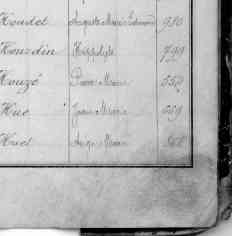 Houdet Auguste Marie 930
Houzdin Hippolyte 799
Houzé Pierre Marie 553
Hue Jean Marie 559
Huet Ange Marie